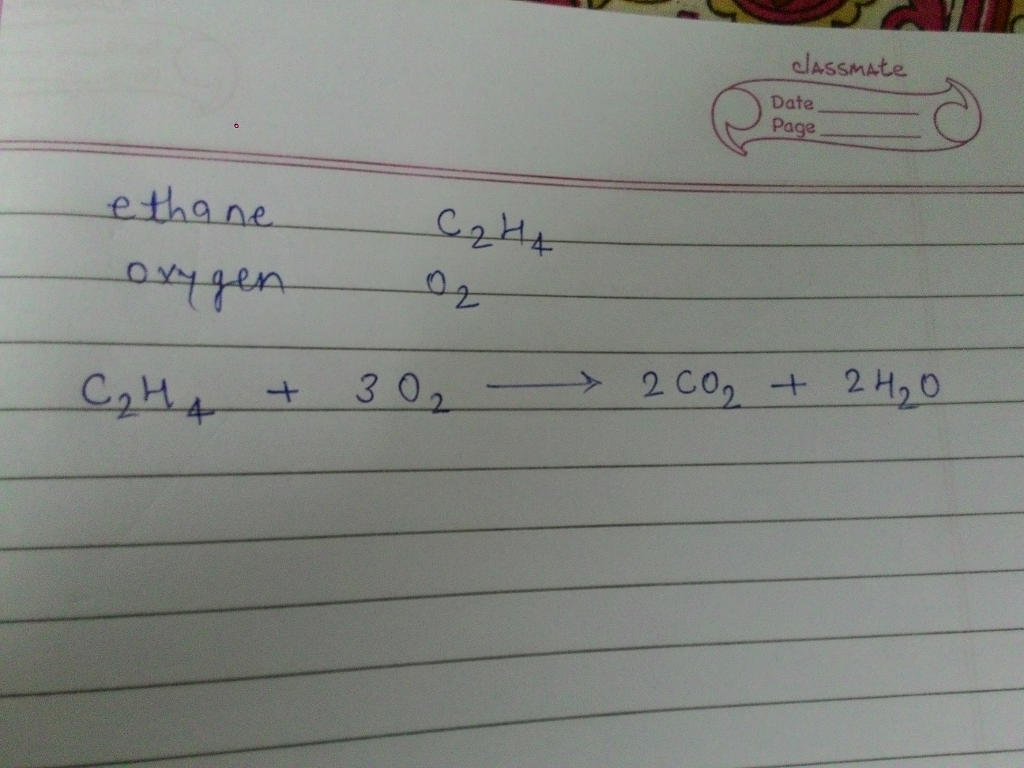 classmate
Date
Page
ethane C₂H₄
oxygen O₂
C₂H₄ + 3O₂ ⟶ 2CO₂ + 2H₂O